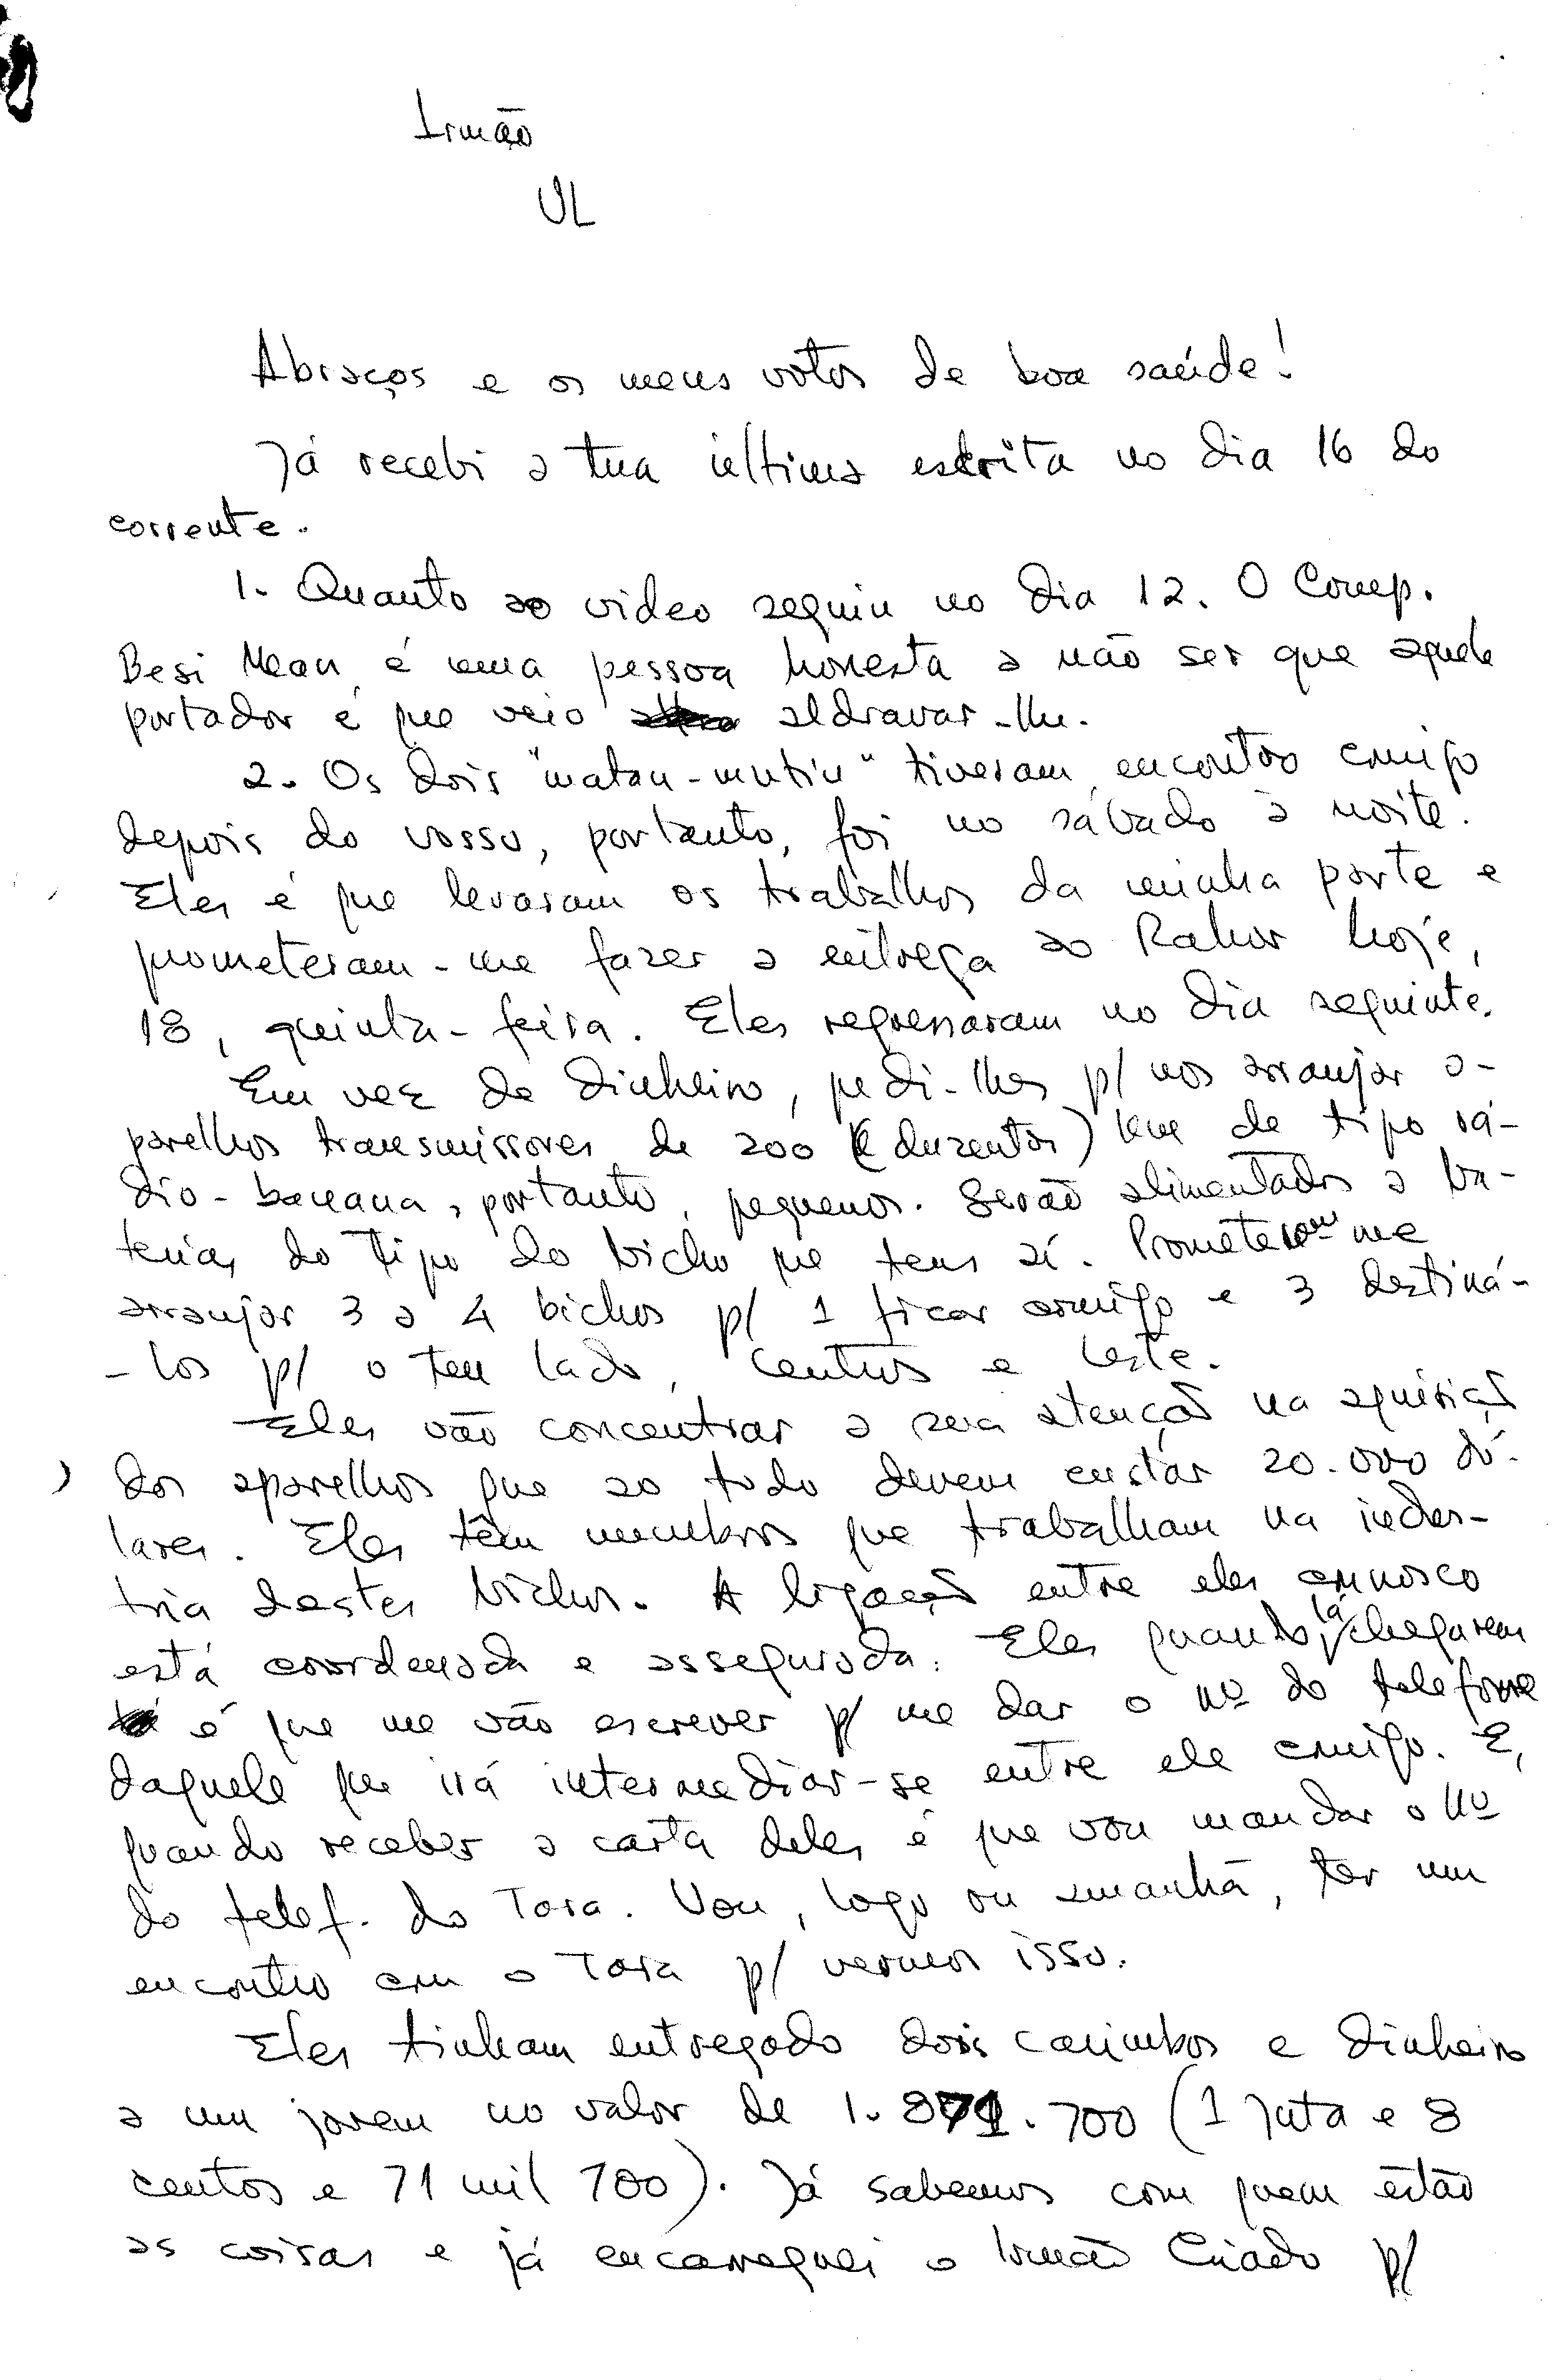 Irmão
UL
Abraços e os meus votos de boa saúde!
Já recebi a tua última escrita no dia 16 do
corrente.
1. Quanto ao video seguiu no dia 12. O Comp.
Besi Mean é uma pessoa honesta a não ser que aquele
portador é que veio aldravar-lhe.
2. Os dois "matan-mutin" tiveram encontro comigo
depois do vosso, portanto, foi no sábado à noite.
Eles é que levaram os trabalhos da minha parte e
prometeram-me fazer a entrega ao Rahur hoje,
18, quinta-feira. Eles regressaram no dia seguinte.
Em vez de dinheiro, pedi-lhes p/ nos arranjar a-
parelhos transmissores de 200 (duzentos) km de tipo rá-
dio-banana, portanto, pequenos. Serão alimentados a ba-
terias do tipo do bicho que tens aí. Prometeram-me
arranjar 3 a 4 bichos p/ 1 ficar comigo e 3 destiná-
-los p/ o teu lado, centro e leste.
Eles vão concentrar a sua atenção na aquisição
dos aparelhos que ao todo devem custar 20.000 dó-
lares. Eles têm membros que trabalham na indús-
tria destes bichos. A ligação entre eles connosco
está coordenada e assegurada. Eles quando lá chegarem
é que me vão escrever p/ me dar o nº do telefone
daquele que irá intermediar-se entre ele comigo. E,
quando receber a carta deles é que vou mandar o nº
do telef. do Tara. Vou, logo ou amanhã, ter um
encontro com o Tara p/ vermos isso.
Eles tinham entregado dois carimbos e dinheiro
a um jovem no valor de 1.871.700 (1 juta e 8
centos e 71 mil 700). Já sabemos com quem estão
as coisas e já encarreguei o Irmão Criado p/